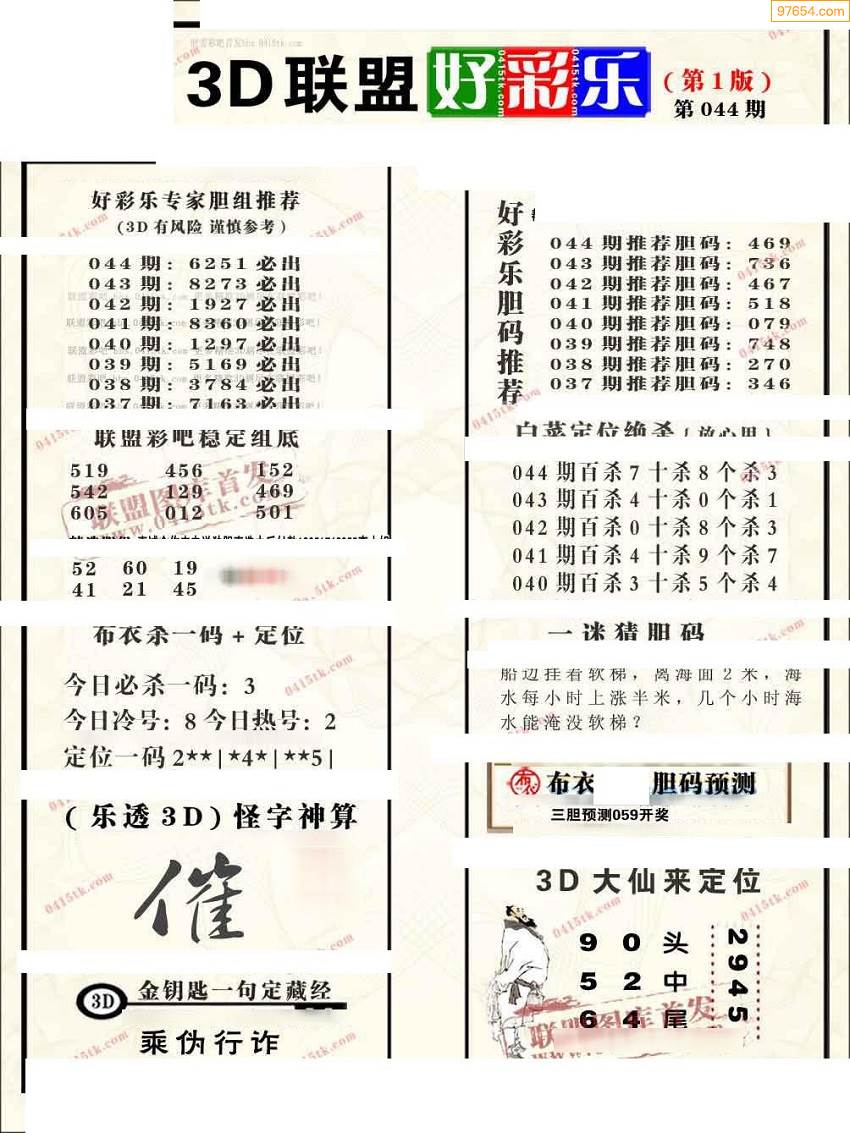 97654.com
3D联盟好彩乐
(第1版)
第044期
好彩乐专家胆组推荐
(3D有风险 谨慎参考)
044期: 6251必出
043期: 8273必出
042期: 1927必出
041期: 8360必出
040期: 1297必出
039期: 5169必出
038期: 3784必出
037期: 7163必出
联盟彩吧稳定组底
519 456 152
542 129 469
605 012 501
52 60 19
41 21 45
布衣杀一码+定位
今日必杀一码: 3
今日冷号: 8 今日热号: 2
定位一码 2**|*4*|**5|
(乐透3D)怪字神算
催
3D 金钥匙一句定藏经
乘伪行诈
好彩乐胆码推荐
044期推荐胆码: 469
043期推荐胆码: 736
042期推荐胆码: 467
041期推荐胆码: 518
040期推荐胆码: 079
039期推荐胆码: 748
038期推荐胆码: 270
037期推荐胆码: 346
白菜定位绝杀{放心用}
044期百杀7十杀8个杀3
043期百杀4十杀0个杀1
042期百杀0十杀8个杀3
041期百杀4十杀9个杀7
040期百杀3十杀5个杀4
一迷猜胆码
船边挂着软梯, 离海面2米, 海
水每小时上涨半米, 几个小时海
水能淹没软梯?
布衣 胆码预测
三胆预测059开奖
3D大仙来定位
9 0 头
5 2 中
6 4 尾
2945
联盟图库首发
www.0415tk.com
0415tk.com